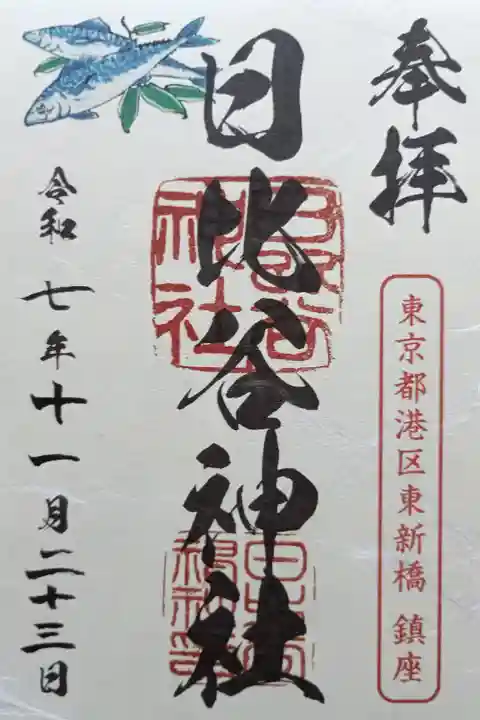 奉拝
東京都港区東新橋 鎮座
日比谷神社
令和七年十一月二十三日